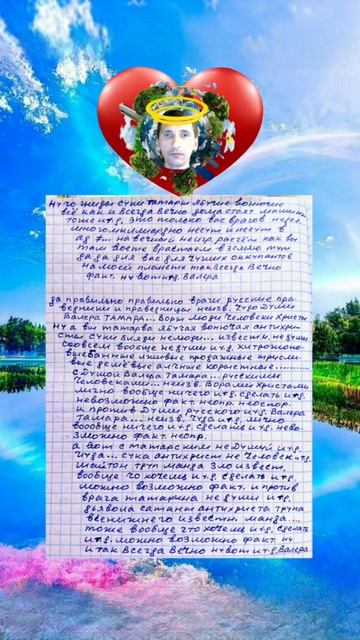 ну что жиды суки татары ябучие вонючие
всё как и всегда вечно дома стоят машины
тоже и т.д. это только вас врагов недо
много миллиардно несут и несут в
ад на вечный
там воете врастаем в землю тут
да да для вас для чужих оккупантов
на моей планете так всегда вечно
факт. ну вот и т.д. Валера
да правильно правильно врачи русские пра-
ведники и праведницы неизв. чудо Души
Валера Тамара... воры люди Человеки Христы
ну а вы татарва ябучая вонючая антихри-
сты суки бляди нелюди... известн. не души
совсем вообще не души и т.д. хитрожопо-
выебанные лживые продажные трусли-
вые дешёвые алчные корыстные...
с Душой Валера Тамара... русскими
Человеками... неизв. Ворами Христами
лично вообще ничего и т.д. сделать и т.д.
невозможно факт. непр. неоспор.
и против Души русского и т.д. Валера
Тамара... неизв. чуда и т.д. лично
вообще ничего и т.д. сделать и т.д. нево
зможно факт. непр.
а вот с татарским не Душой и т.д.
чуда... сука антихрист не Человек и т.д.
шайтон труп манда зло извест.
вообще чо хочешь и т.д. сделать и т.д.
можно возможно факт. и против
врага татарина не души и т.д.
дьявола сатаны антихриста трупа
известн. манда....
тоже вообще что хочешь и т.д. сделать
и т.д. можно возможно факт. ну
и так Всегда Вечно ну вот и т.д. Валера